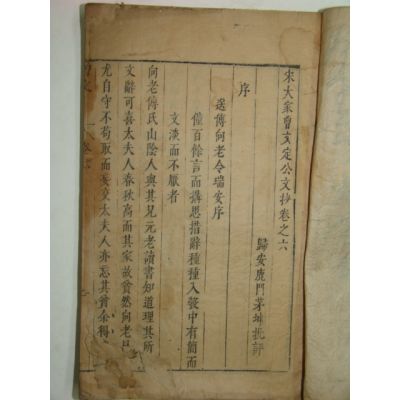 宋大家曾文定公文抄卷之六
歸安鹿門茅坤批評
序
送傅向老令瑞安序
僅百餘言而構思措辭種種入彀中有簡而
文淡而不厭者
向老傅氏山陰人與其兄元老讀書知道理其所
文辭可喜太夫人春秋高而其家故貧然向老昆
尤自守不苟取而妄交太夫人亦忘其貧余得